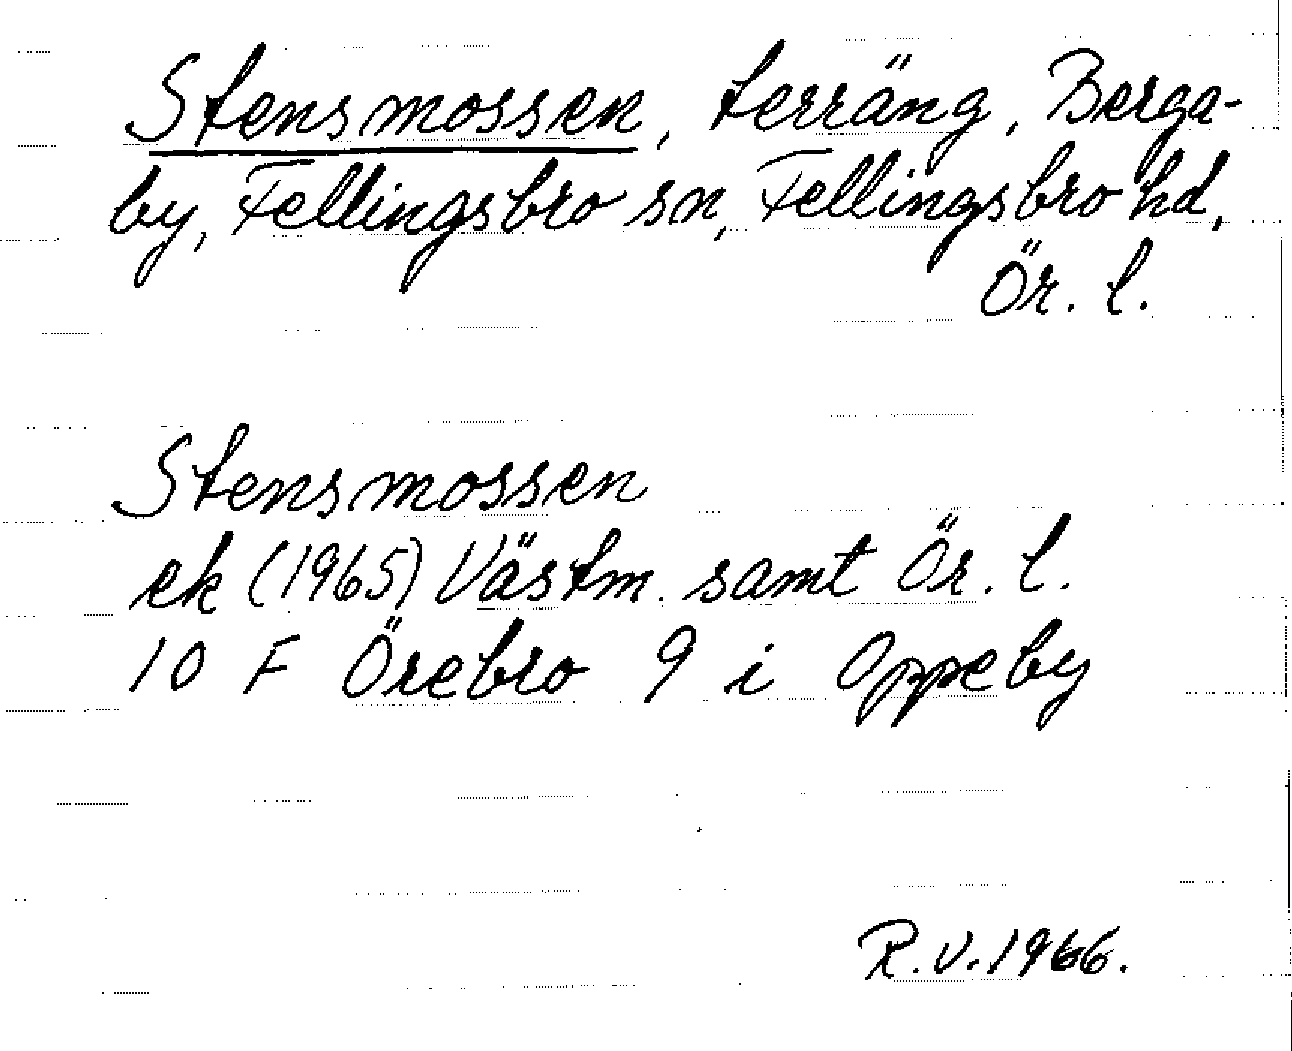 Stensmossen, terräng, Berga-
by, Fellingsbro sn, Fellingsbro hd,
Ör. l.
Stensmossen
ek (1965) Västm. samt Ör. l.
10 F Örebro 9 i Oppeby
R.V.1966.